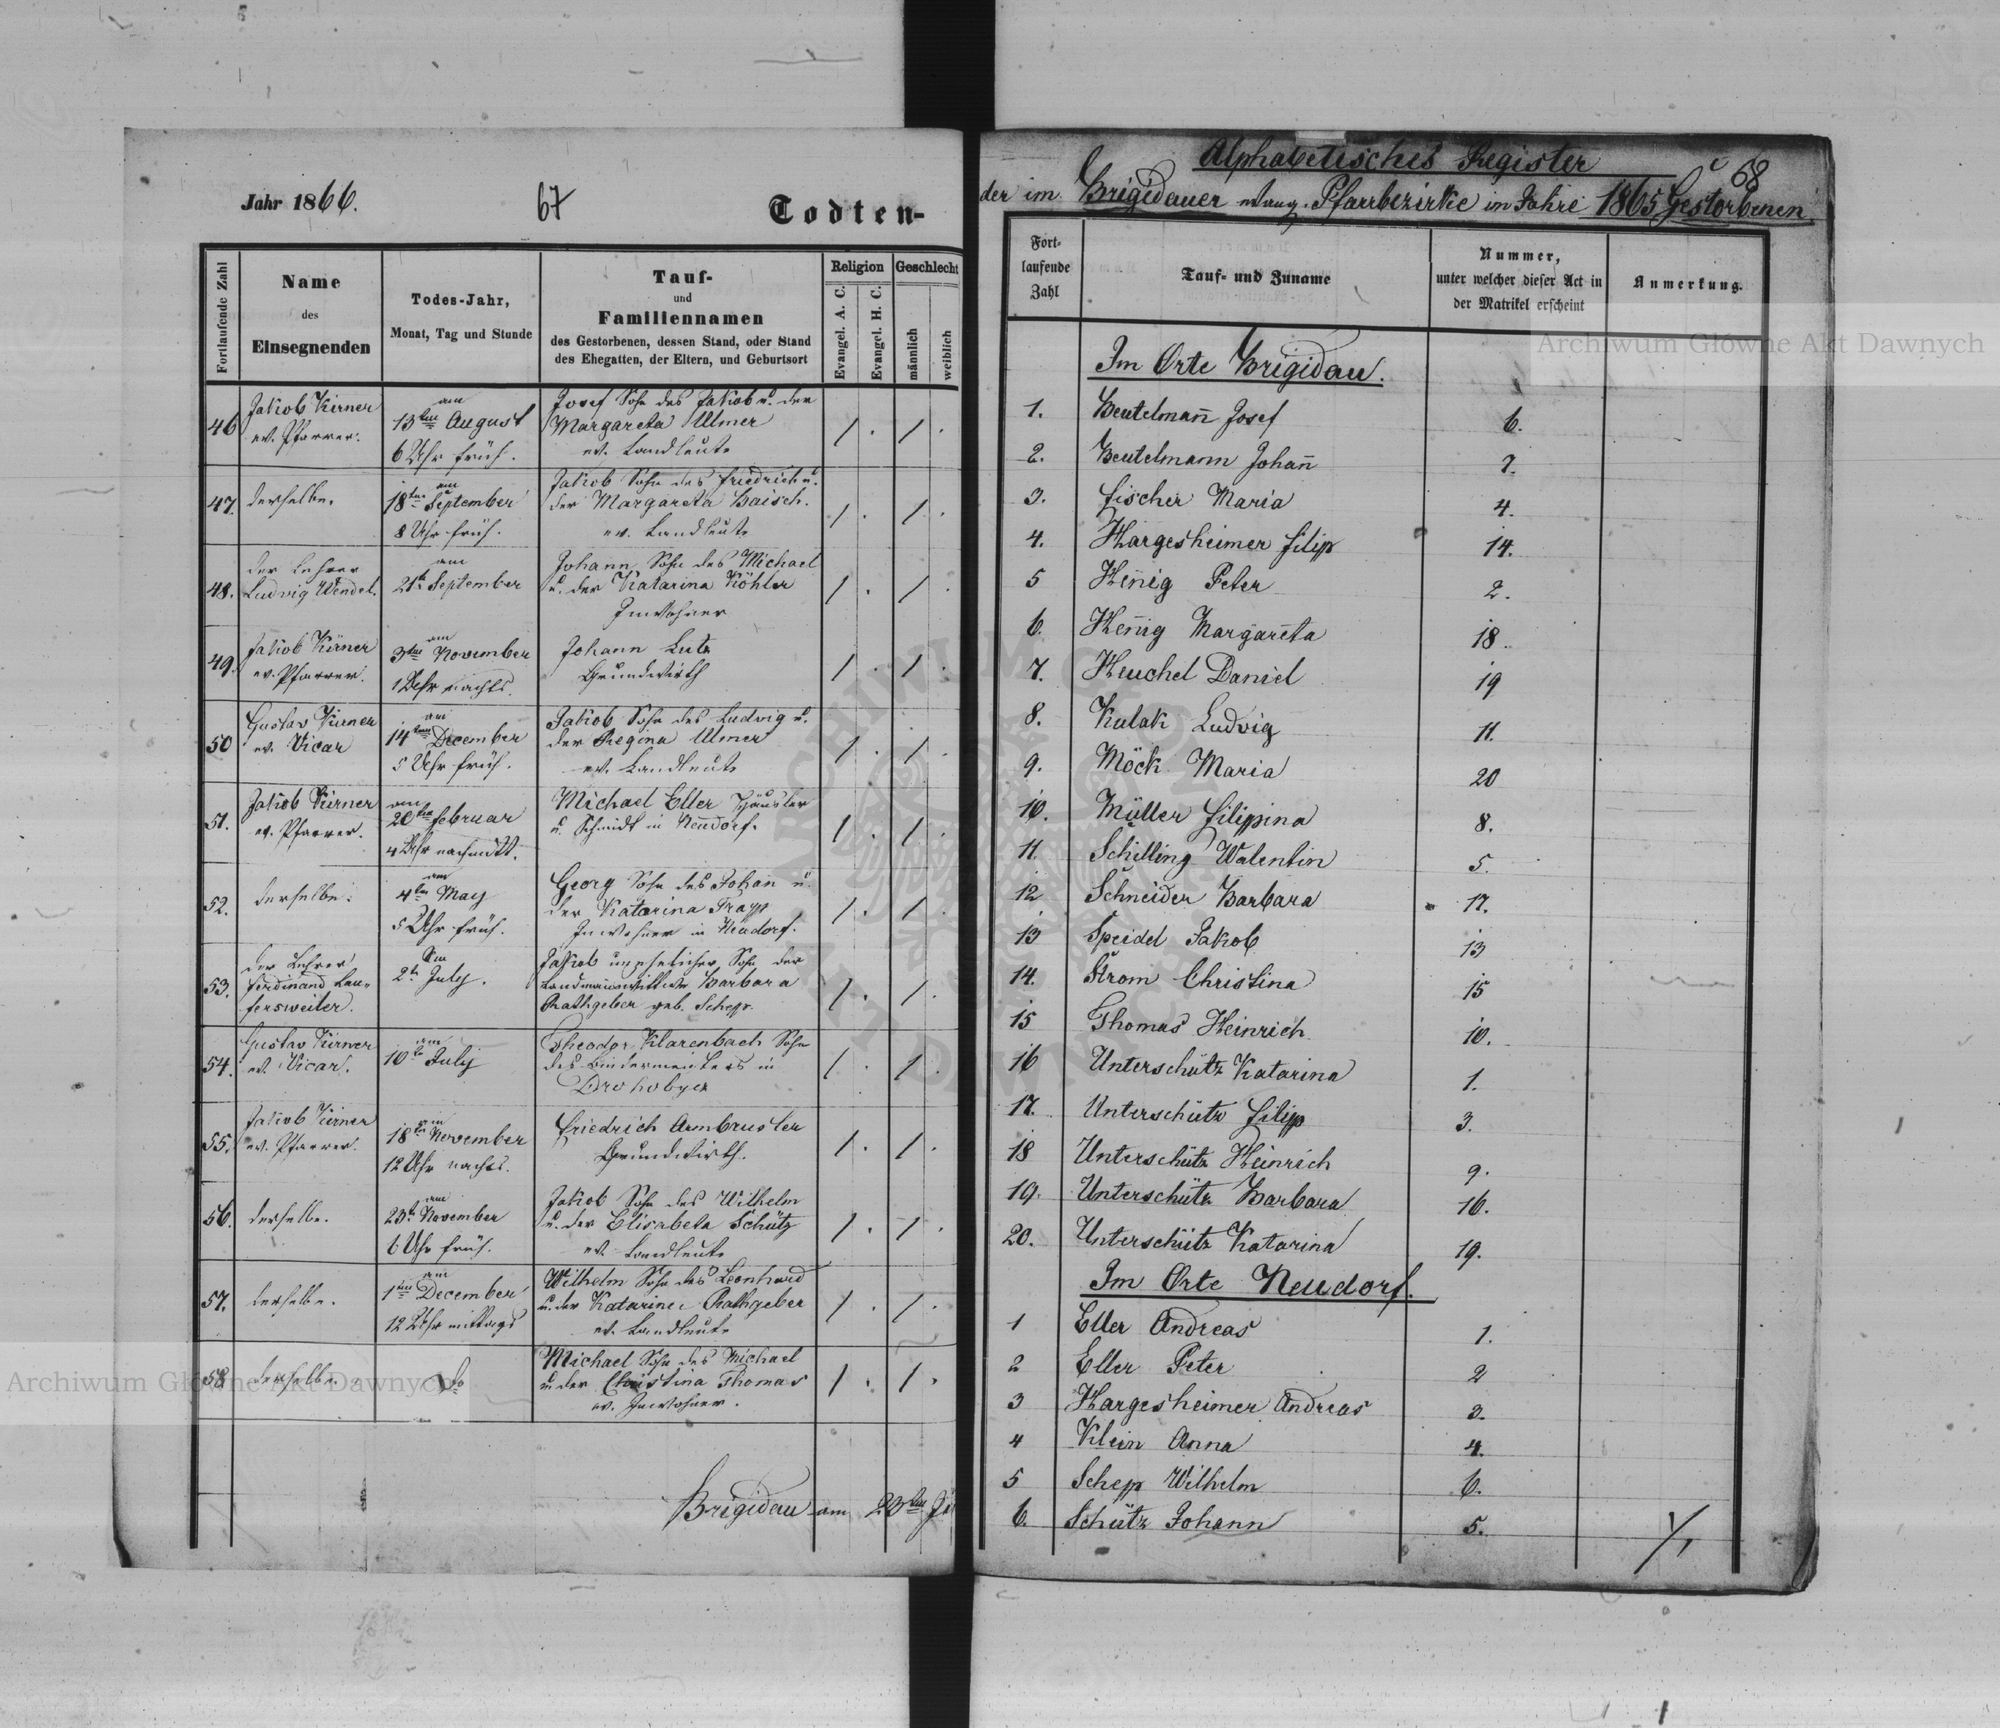 Jahr 1866.
67
Todten-
Fortlaufende Zahl
Name
des
Einsegnenden
Todes-Jahr,
Monat, Tag und Stunde
Tauf-
und
Familiennamen
des Gestorbenen, dessen Stand, oder Stand
des Ehegatten, der Eltern, und Geburtsort
Religion
Geschlecht
Evangel. A. C.
Evangel. H. C.
männlich
weiblich
46
Jakob Kirner
ev. Pfarrer.
am
13ten August
6 Uhr früh.
Josef Sohn des Jakob u. der
Margareta Ulmer
ev. Landleute
/ . / .
47.
derselbe.
am
18ten September
8 Uhr früh.
Jakob Sohn des Friedrich u.
der Margareta Baisch.
ev. Landleute
/ . / .
48.
der Lehrer
Ludwig Wendel.
am
21ten September
Johann Sohn des Michael
u. der Katarina Köhler
Inwohner
/ . / .
49.
Jakob Kirner
ev. Pfarrer.
am
3ten November
1 Uhr nachts.
Johann Lutz
Grundwirth
/ . / .
50
Gustav Kirner
ev. Vicar
am
14ten December
5 Uhr früh.
Jakob Sohn des Ludwig u.
der Regina Ulmer
ev. Landleute
/ . / .
51.
Jakob Kirner
ev. Pfarrer.
am
20ten Februar
4 Uhr nachmitt.
Michael Eller Häusler
u. Schmidt in Neudorf.
/ . / .
52.
derselbe.
am
4ten May
5 Uhr früh.
Georg Sohn des Johan u.
der Katarina Trapp
Inwohner in Neudorf.
/ . / .
53.
der Lehrer
Ferdinand Lau-
fersweiler.
Am
2ten July.
Jakob unehelicher Sohn der
Landmannswittwe Barbara
Rathgeber geb. Schepp.
/ . / .
54.
Gustav Kirner
ev. Vicar.
am
10ten July
Theodor Klarenbach Sohn
des Bindermeisters in
Drohobycz
/ . / .
55.
Jakob Kirner
ev. Pfarrer.
am
18ten November
12 Uhr nachts.
Friedrich Armbruster
Grundwirth.
/ . / .
56.
derselbe.
am
23ten November
6 Uhr früh.
Jakob Sohn des Wilhelm
u. der Elisabeta Schütz
ev. Landleute
/ . / .
57.
derselbe.
am
1ten December
12 Uhr mittags
Wilhelm Sohn des Leonhard
u. der Katarina Rathgeber
ev. Landleute
/ . / .
58.
derselbe.
do
Michael Sohn des Michael
u. der Christina Thomas
ev. Inwohner.
/ . / .
Brigidau am 23ten
Alphabetisches Register
68
der im Brigidauer evang. Pfarrbezirke im Jahre 1865 Gestorbenen.
Fort-
laufende
Zahl
Tauf- und Zuname
Nummer,
unter welcher dieser Act in
der Matrikel erscheint
Anmerkung.
Im Orte Brigidau.
1. Beutelman̄ Josef 6.
2. Beutelmann Johan̄ 7.
3. Fischer Maria 4.
4. Hargesheimer Filip 14.
5 Hen̄ig Peter 2.
6. Hen̄ig Margareta 18.
7. Heuchel Daniel 19
8. Kulak Ludvig 11.
9. Möck Maria 20
10. Müller Filippina 8.
11. Schilling Walentin 5.
12 Schneider Barbara 17.
13 Speidel Jakob 13
14. Strom Christina 15
15 Thomas Heinrich 10.
16 Unterschütz Katarina 1.
17. Unterschütz Filipp 3.
18 Unterschütz Heinrich 9.
19. Unterschütz Barbara 16.
20. Unterschütz Katarina 19.
Im Orte Neudorf.
1 Eller Andreas 1.
2 Eller Peter 2
3 Hargesheimer Andreas 3.
4 Klein Anna 4.
5 Schepp Wilhelm 6.
6. Schütz Johann 5.
Archiwum Główne Akt Dawnych
Archiwum Główne Akt Dawnych